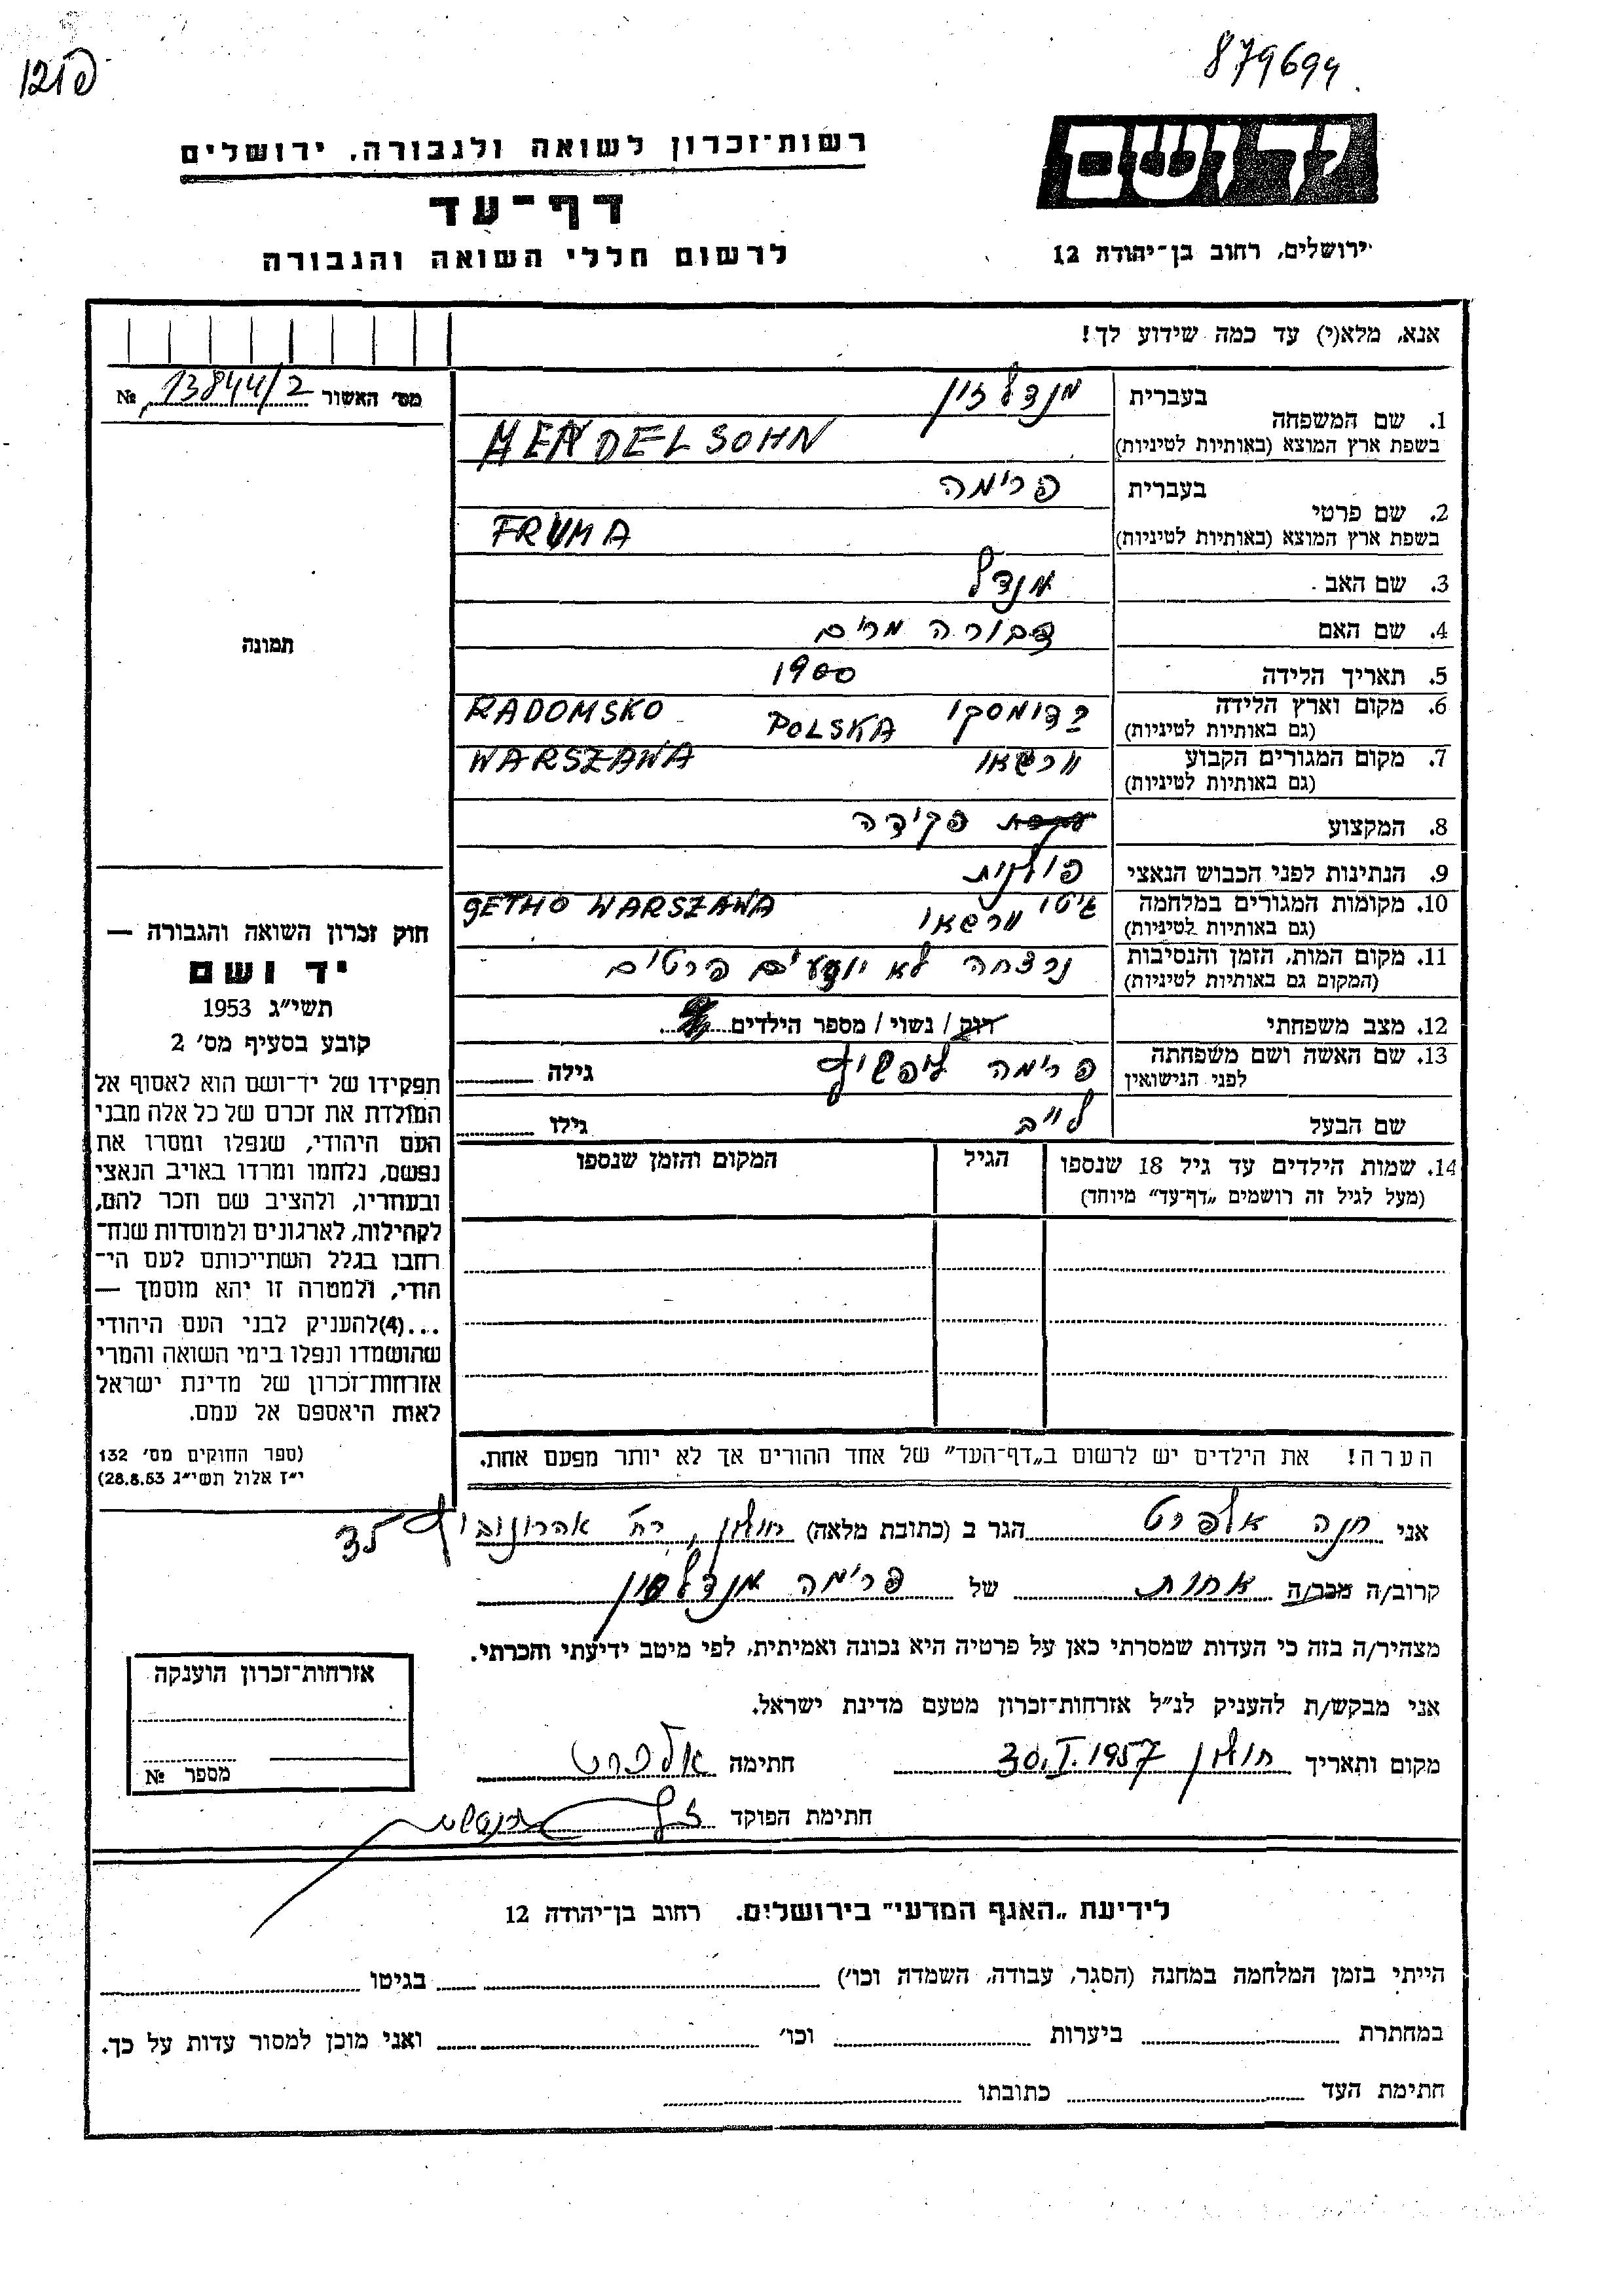 879694
יד ושם
ירושלים, רחוב בן־יהודה 12
רשות־זכרון לשואה ולגבורה. ירושלים
דף־עד
לרשום חללי השואה והגבורה
אנא, מלא(י) עד כמה שידוע לך!
מס׳ האשור 13844/2 №
בעברית מנדלזון
1. שם המשפחה
בשפת ארץ המוצא (באותיות לטיניות) MENDELSOHN
בעברית פרימה
2. שם פרטי
בשפת ארץ המוצא (באותיות לטיניות) FRUMA
3. שם האב מנדל
4. שם האם דבורה מרים
5. תאריך הלידה 1900
6. מקום וארץ הלידה רדומסקו POLSKA RADOMSKO
(גם באותיות לטיניות)
7. מקום המגורים הקבוע ורשאו WARSZAWA
(גם באותיות לטיניות)
8. המקצוע פקידה
9. הנתינות לפני הכבוש הנאצי פולנית
10. מקומות המגורים במלחמה גיטו ורשאו GETHO WARSZAWA
(גם באותיות לטיניות)
11. מקום המות, הזמן והנסיבות נרצחה לא יודעים פרטים
(המקום גם באותיות לטיניות)
12. מצב משפחתי רווק / נשוי / מספר הילדים
13. שם האשה ושם משפחתה פרימה ליפשיץ גילה
לפני הנישואין
שם הבעל לייב גילו
14. שמות הילדים עד גיל 18 שנספו הגיל המקום והזמן שנספו
(מעל לגיל זה רושמים „דף־עד” מיוחד)
הערה! את הילדים יש לרשום ב„דף־העד” של אחד ההורים אך לא יותר מפעם אחת.
תמונה
חוק זכרון השואה והגבורה —
יד ושם
תשי״ג 1953
קובע בסעיף מס׳ 2
תפקידו של יד־ושם הוא לאסוף אל
המולדת את זכרם של כל אלה מבני
העם היהודי, שנפלו ומסרו את
נפשם, נלחמו ומרדו באויב הנאצי
ובעוזריו, ולהציב שם וזכר להם,
לקהילות, לארגונים ולמוסדות שנח־
רבו בגלל השתייכותם לעם הי־
הודי, ולמטרה זו יהא מוסמך —
...(4)להעניק לבני העם היהודי
שהושמדו ונפלו בימי השואה והמרי
אזרחות־זכרון של מדינת ישראל
לאות היאספם אל עמם.
(ספר החוקים מס׳ 132
י״ז אלול תשי״ג 28.8.53)
אני חנה אלפרט הגר ב (כתובת מלאה) חולון, רח׳ אהרונוביץ
קרוב/ה מכר/ה אחות של פרימה מנדלסון
מצהיר/ה בזה כי העדות שמסרתי כאן על פרטיה היא נכונה ואמיתית, לפי מיטב ידיעתי והכרתי.
אני מבקש/ת להעניק לנ״ל אזרחות־זכרון מטעם מדינת ישראל.
מקום ותאריך חולון 30.I.1957 חתימה אלפרט
חתימת הפוקד
אזרחות־זכרון הוענקה
מספר №
לידיעת „האגף המדעי” בירושלים. רחוב בן־יהודה 12
הייתי בזמן המלחמה במחנה (הסגר, עבודה, השמדה וכו׳) בגיטו
במחתרת ביערות וכו׳ ואני מוכן למסור עדות על כך.
חתימת העד כתובתו